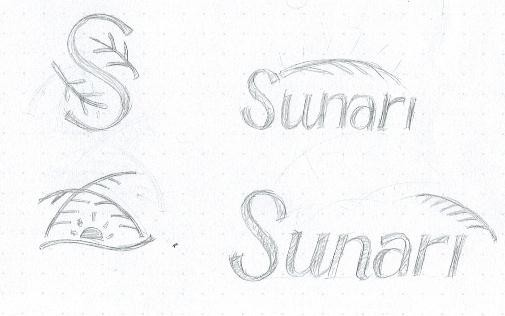 S
Sunari
Sunari